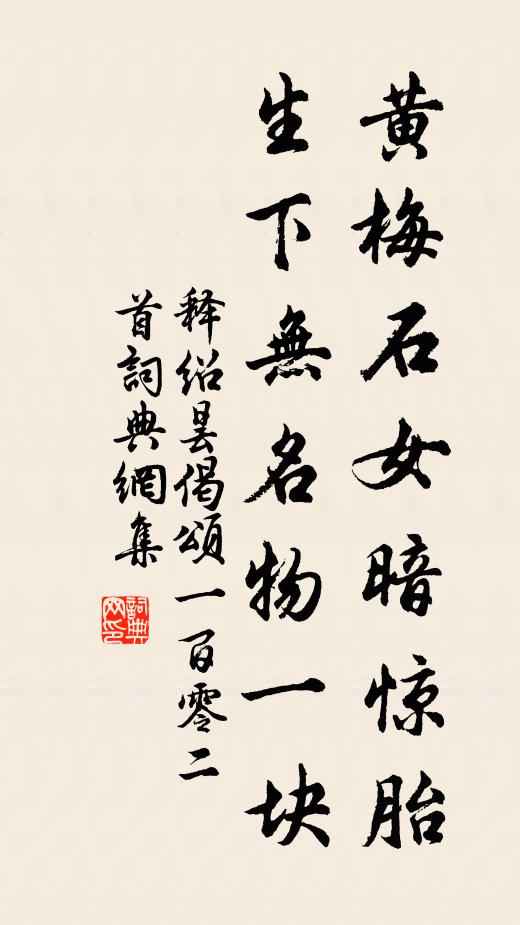 黄梅石女暗惊胎
生下無名物一块
释绍昙偈頌一百零二
首詞典網集
詞典
网印